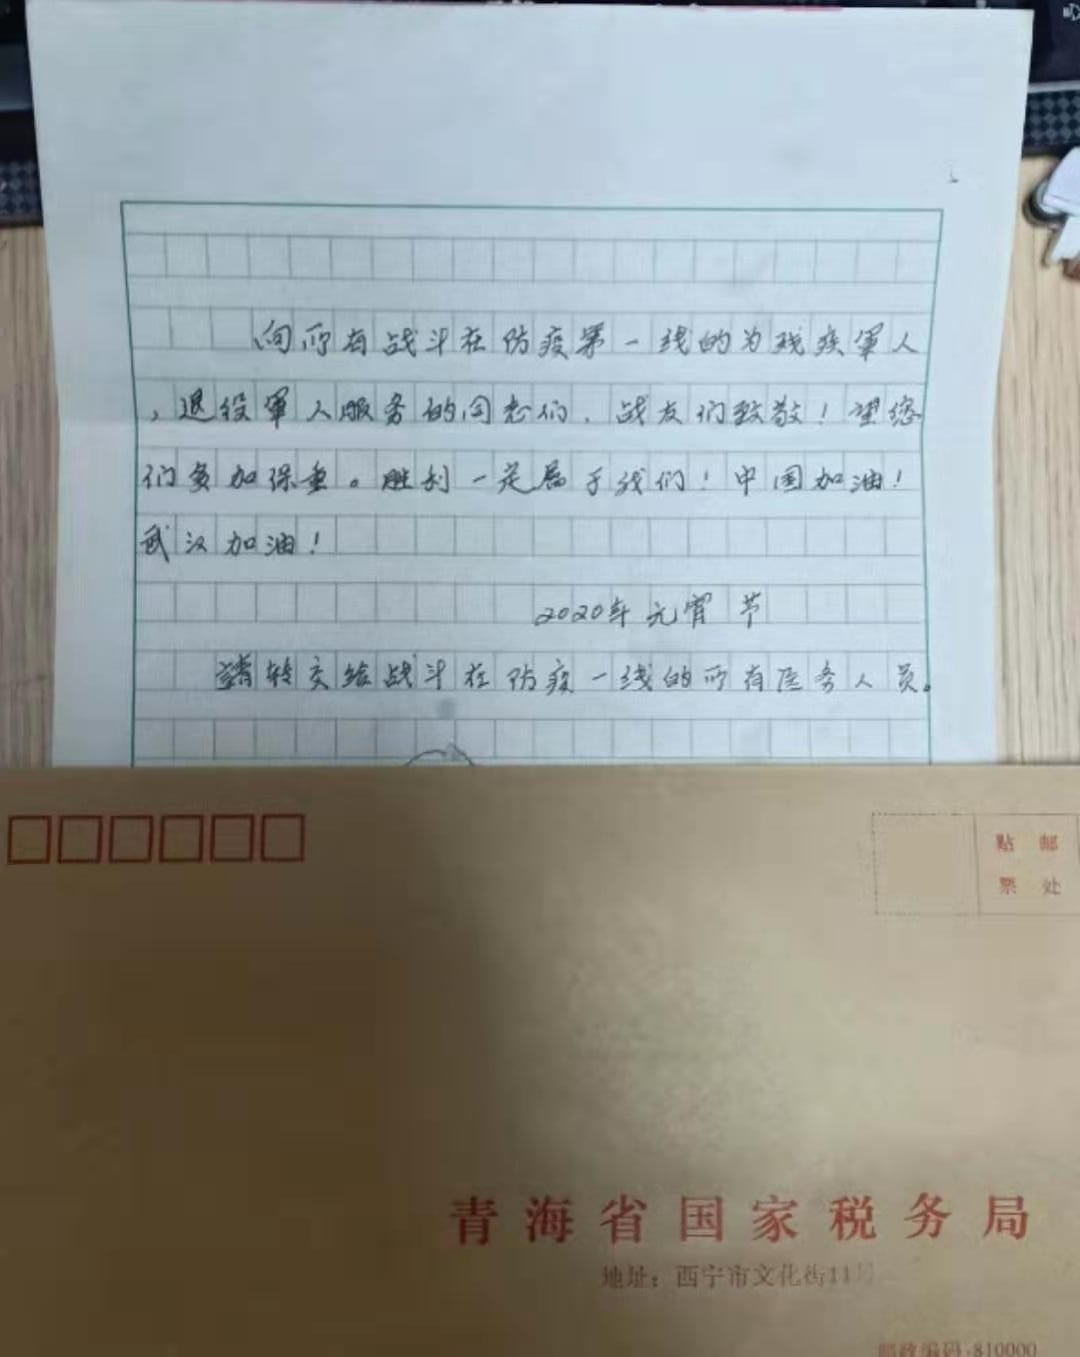 向所有战斗在防疫第一线的为残疾军人
，退役军人服务的同志们、战友们致敬！望您
们多加保重。胜利一定属于我们！中国加油！
武汉加油！
2020年元宵节
请转交给战斗在防疫一线的所有医务人员。
贴邮
票处
青海省国家税务局
地址：西宁市文化街11号
邮政编码:810000